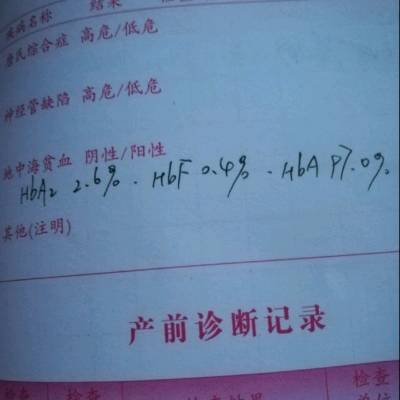 疾病名称 结果
唐氏综合症 高危/低危
神经管缺陷 高危/低危
地中海贫血 阴性/阳性
HbA2 2.6% . HbF 0.4% . HbA 97.0%
其他(注明)
产前诊断记录
检查 检查 检查